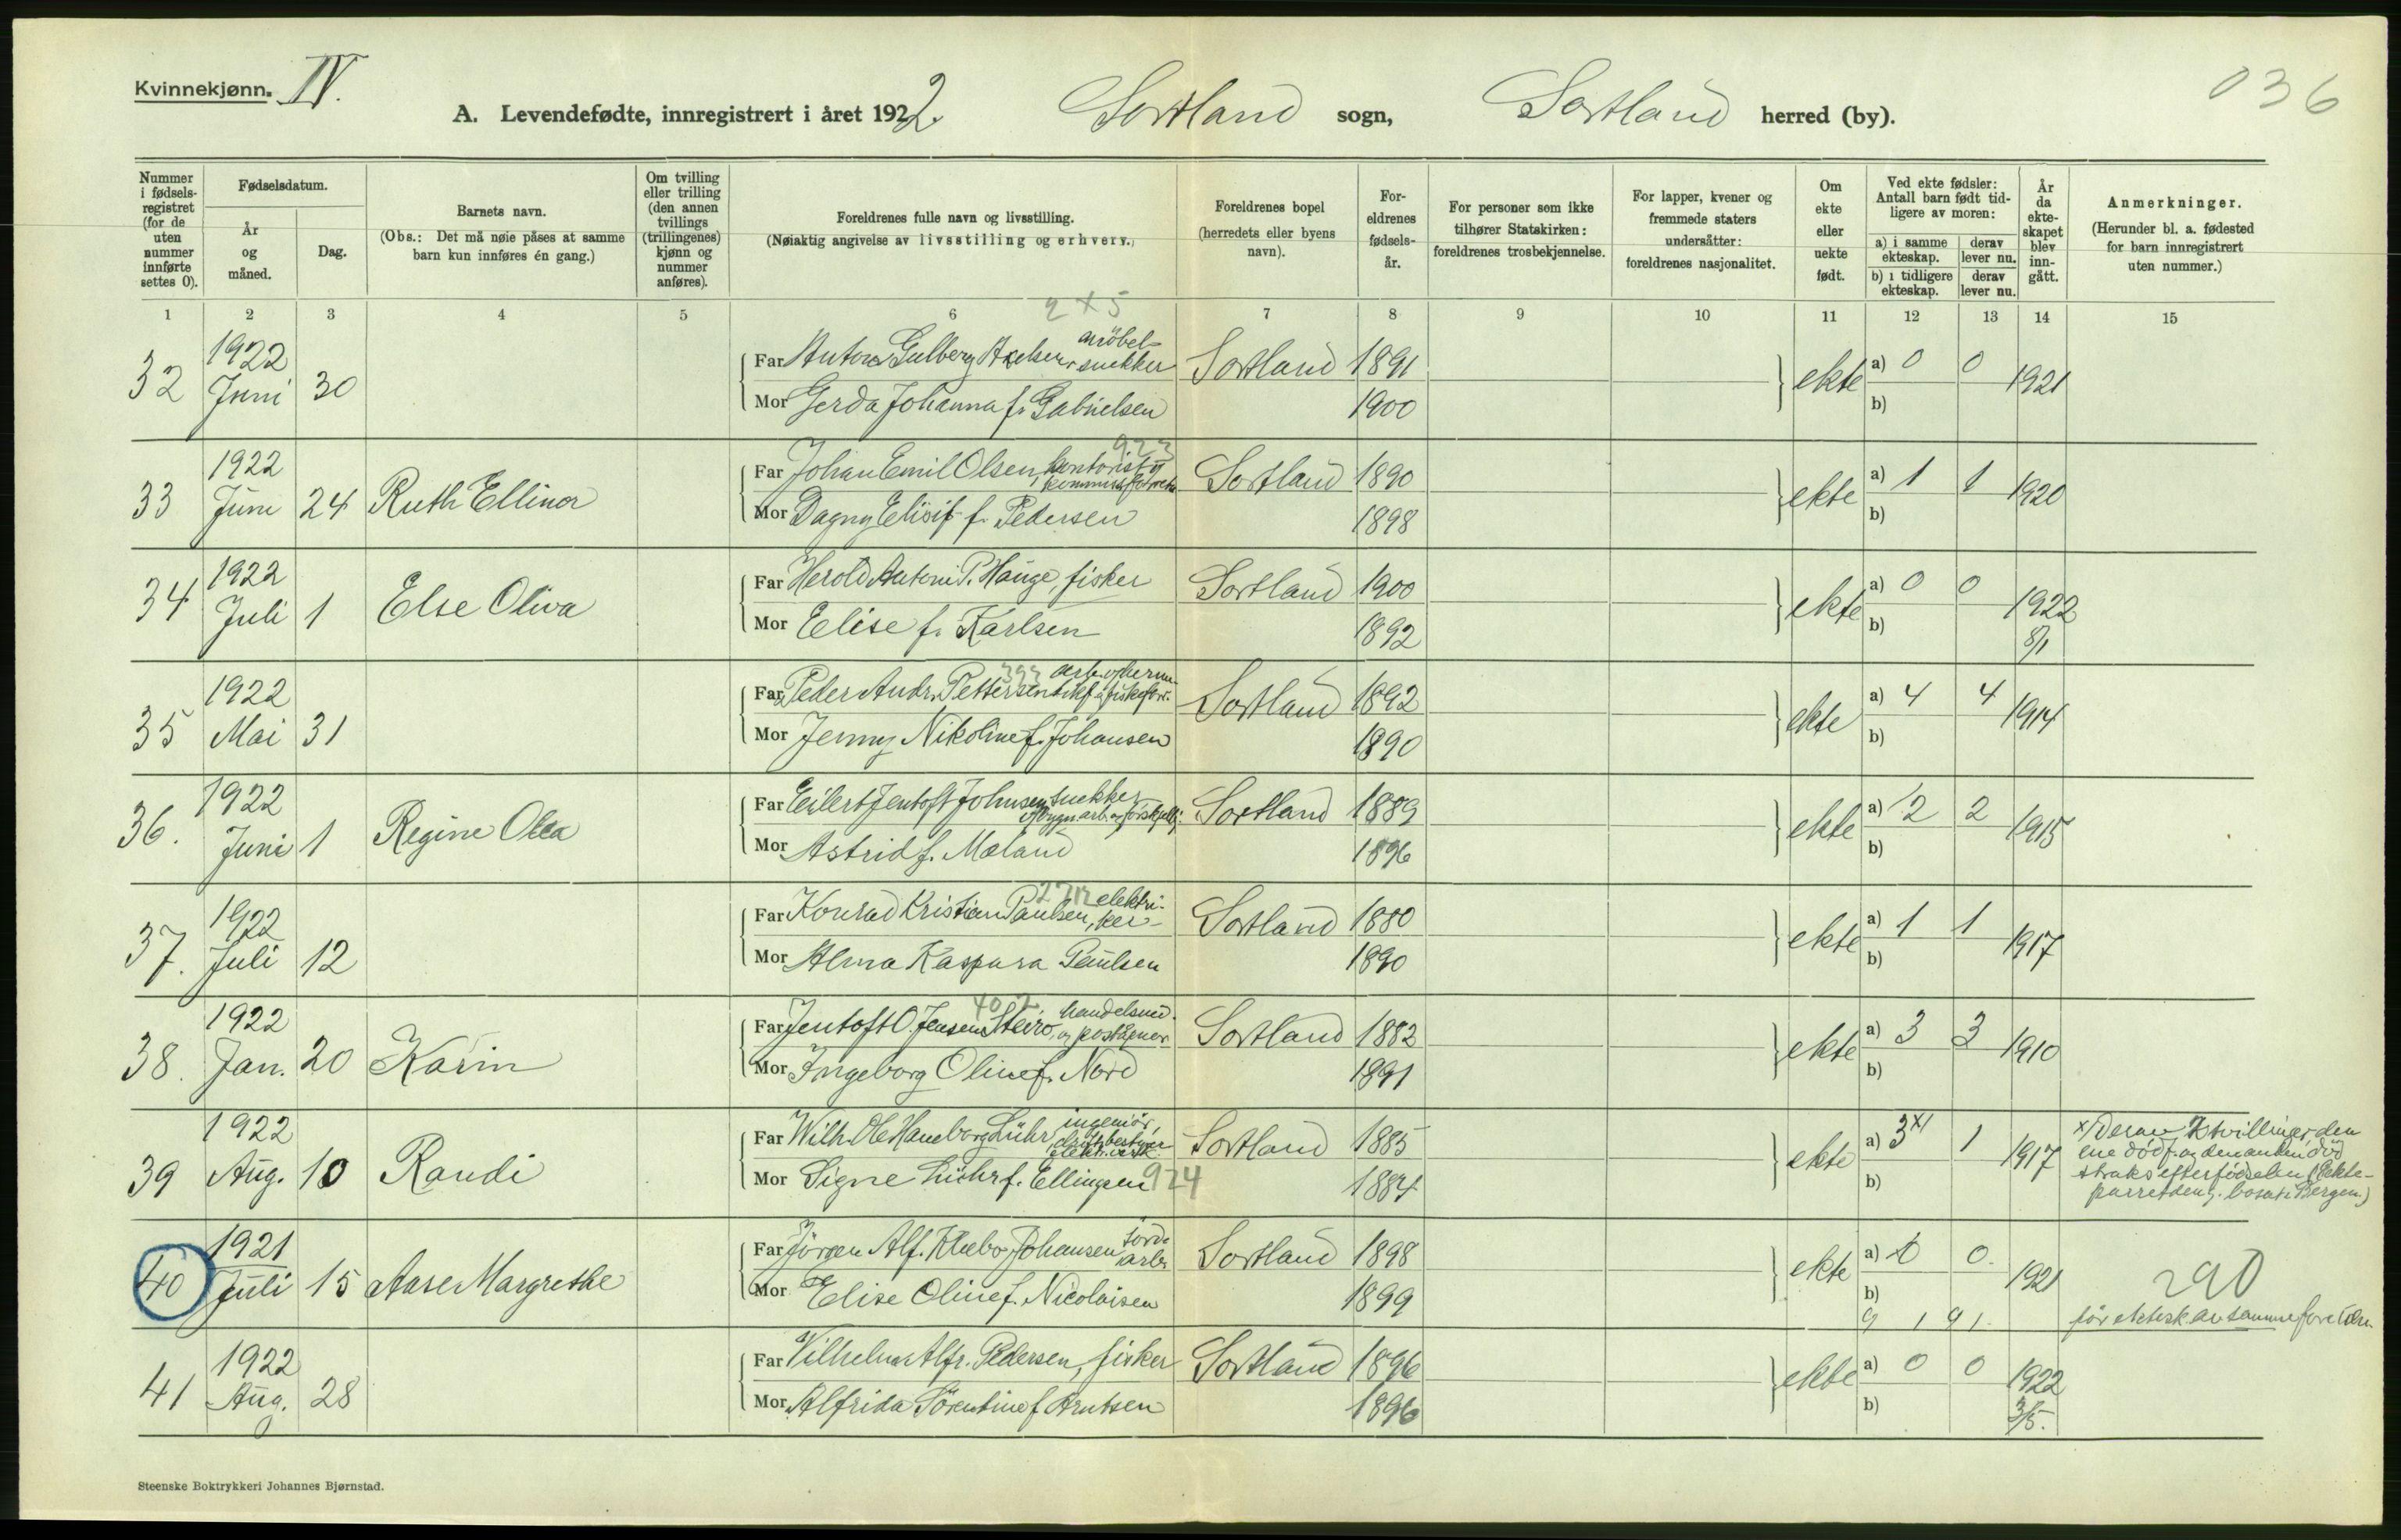 Kvinnekjønn. IV.
036
A. Levendefødte, innregistrert i året 1922. Sortland sogn, Sortland herred (by).
Nummer i fødsels- registret (for de uten nummer innførte settes 0).
Fødselsdatum.
År og måned.
Dag.
Barnets navn.
(Obs.: Det må nøie påses at samme barn kun innføres én gang.)
Om tvilling eller trilling (den annen tvillings (trillingenes) kjønn og nummer anføres).
Foreldrenes fulle navn og livsstilling.
(Nøiaktig angivelse av livsstilling og erhverv.)
Foreldrenes bopel (herredets eller byens navn).
For- eldrenes fødsels- år.
For personer som ikke tilhører Statskirken: foreldrenes trosbekjennelse.
For lapper, kvener og fremmede staters undersåtter: foreldrenes nasjonalitet.
Om ekte eller uekte født.
Ved ekte fødsler: Antall barn født tid- ligere av moren:
a) i samme ekteskap.
derav lever nu.
b) i tidligere ekteskap.
derav lever nu.
År da ekte- skapet blev inn- gått.
Anmerkninger.
(Herunder bl. a. fødested for barn innregistrert uten nummer.)
1 2 3 4 5 6 7 8 9 10 11 12 13 14 15
2 x 5
32 1922 Juni 30
Far Anton Gulberg Axelsen, møbel- snekker Sortland 1891
Mor Gerda Johanna f. Gabrielsen 1900
ekte a) 0 0 1921
b)
923
33 1922 Juni 24 Ruth Ellinor
Far Johan Emil Olsen, kontorist Sortland 1890
Mor Dagny Elisif f. Pedersen 1898
ekte a) 1 1 1920
b)
34 1922 Juli 1 Else Oliva
Far Herold Antoni P. Hauge, fisker Sortland 1900
Mor Elise f. Karlsen 1892
ekte a) 0 0 1922 8/1
b)
393
35 1922 Mai 31
Far Peder Andr. Pettersen Sortland 1892
Mor Jenny Nikoline f. Johansen 1890
ekte a) 4 4 1914
b)
36. 1922 Juni 1 Regine Olea
Far Eilert Jentoft Johnsen, snekker Sortland 1889
Mor Astrid f. Mæland 1896
ekte a) 2 2 1915
b)
37. 1922 Juli 12
Far Konrad Kristian Paulsen, elektri- ker Sortland 1880
Mor Alma Kaspara Paulsen 1890
ekte a) 1 1 1917
b)
402
38. 1922 Jan. 20 Karin
Far Jentoft O. Jensen Steiro, handelsmd. og Sortland 1882
Mor Ingeborg Oline f. Nord 1891
ekte a) 3 3 1910
b)
39 1922 Aug. 10 Randi
Far Wilh. Ole Haneborg Lühr, ingeniør, driftsbestyrer elektr. verk Sortland 1885
Mor Signe Lühr f. Ellingsen 924 1884
ekte a) 3 x) 1 1917
b)
x) Derav 2 tvillinger, den
ene dødf. og den anden død
straks efter fødselen (Ekte-
parret den g. bosatt i Bergen.)
40 1921 Juli 15 Aase Margrethe
Far Jörgen Alf. Klæbo Johansen jord- arb. Sortland 1898
Mor Elise Oline f. Nicolaisen 1899
ekte a) 0 0. 1921
b)
g 1 g 1.
290
för ektesk. av samme foreldre.
41 1922 Aug. 28
Far Vilhelm Alfr. Pedersen, fisker Sortland 1896
Mor Alfrida Sörentine f. Arntsen 1896
ekte a) 0 0 1922 3/5.
b)
Steenske Boktrykkeri Johannes Bjørnstad.